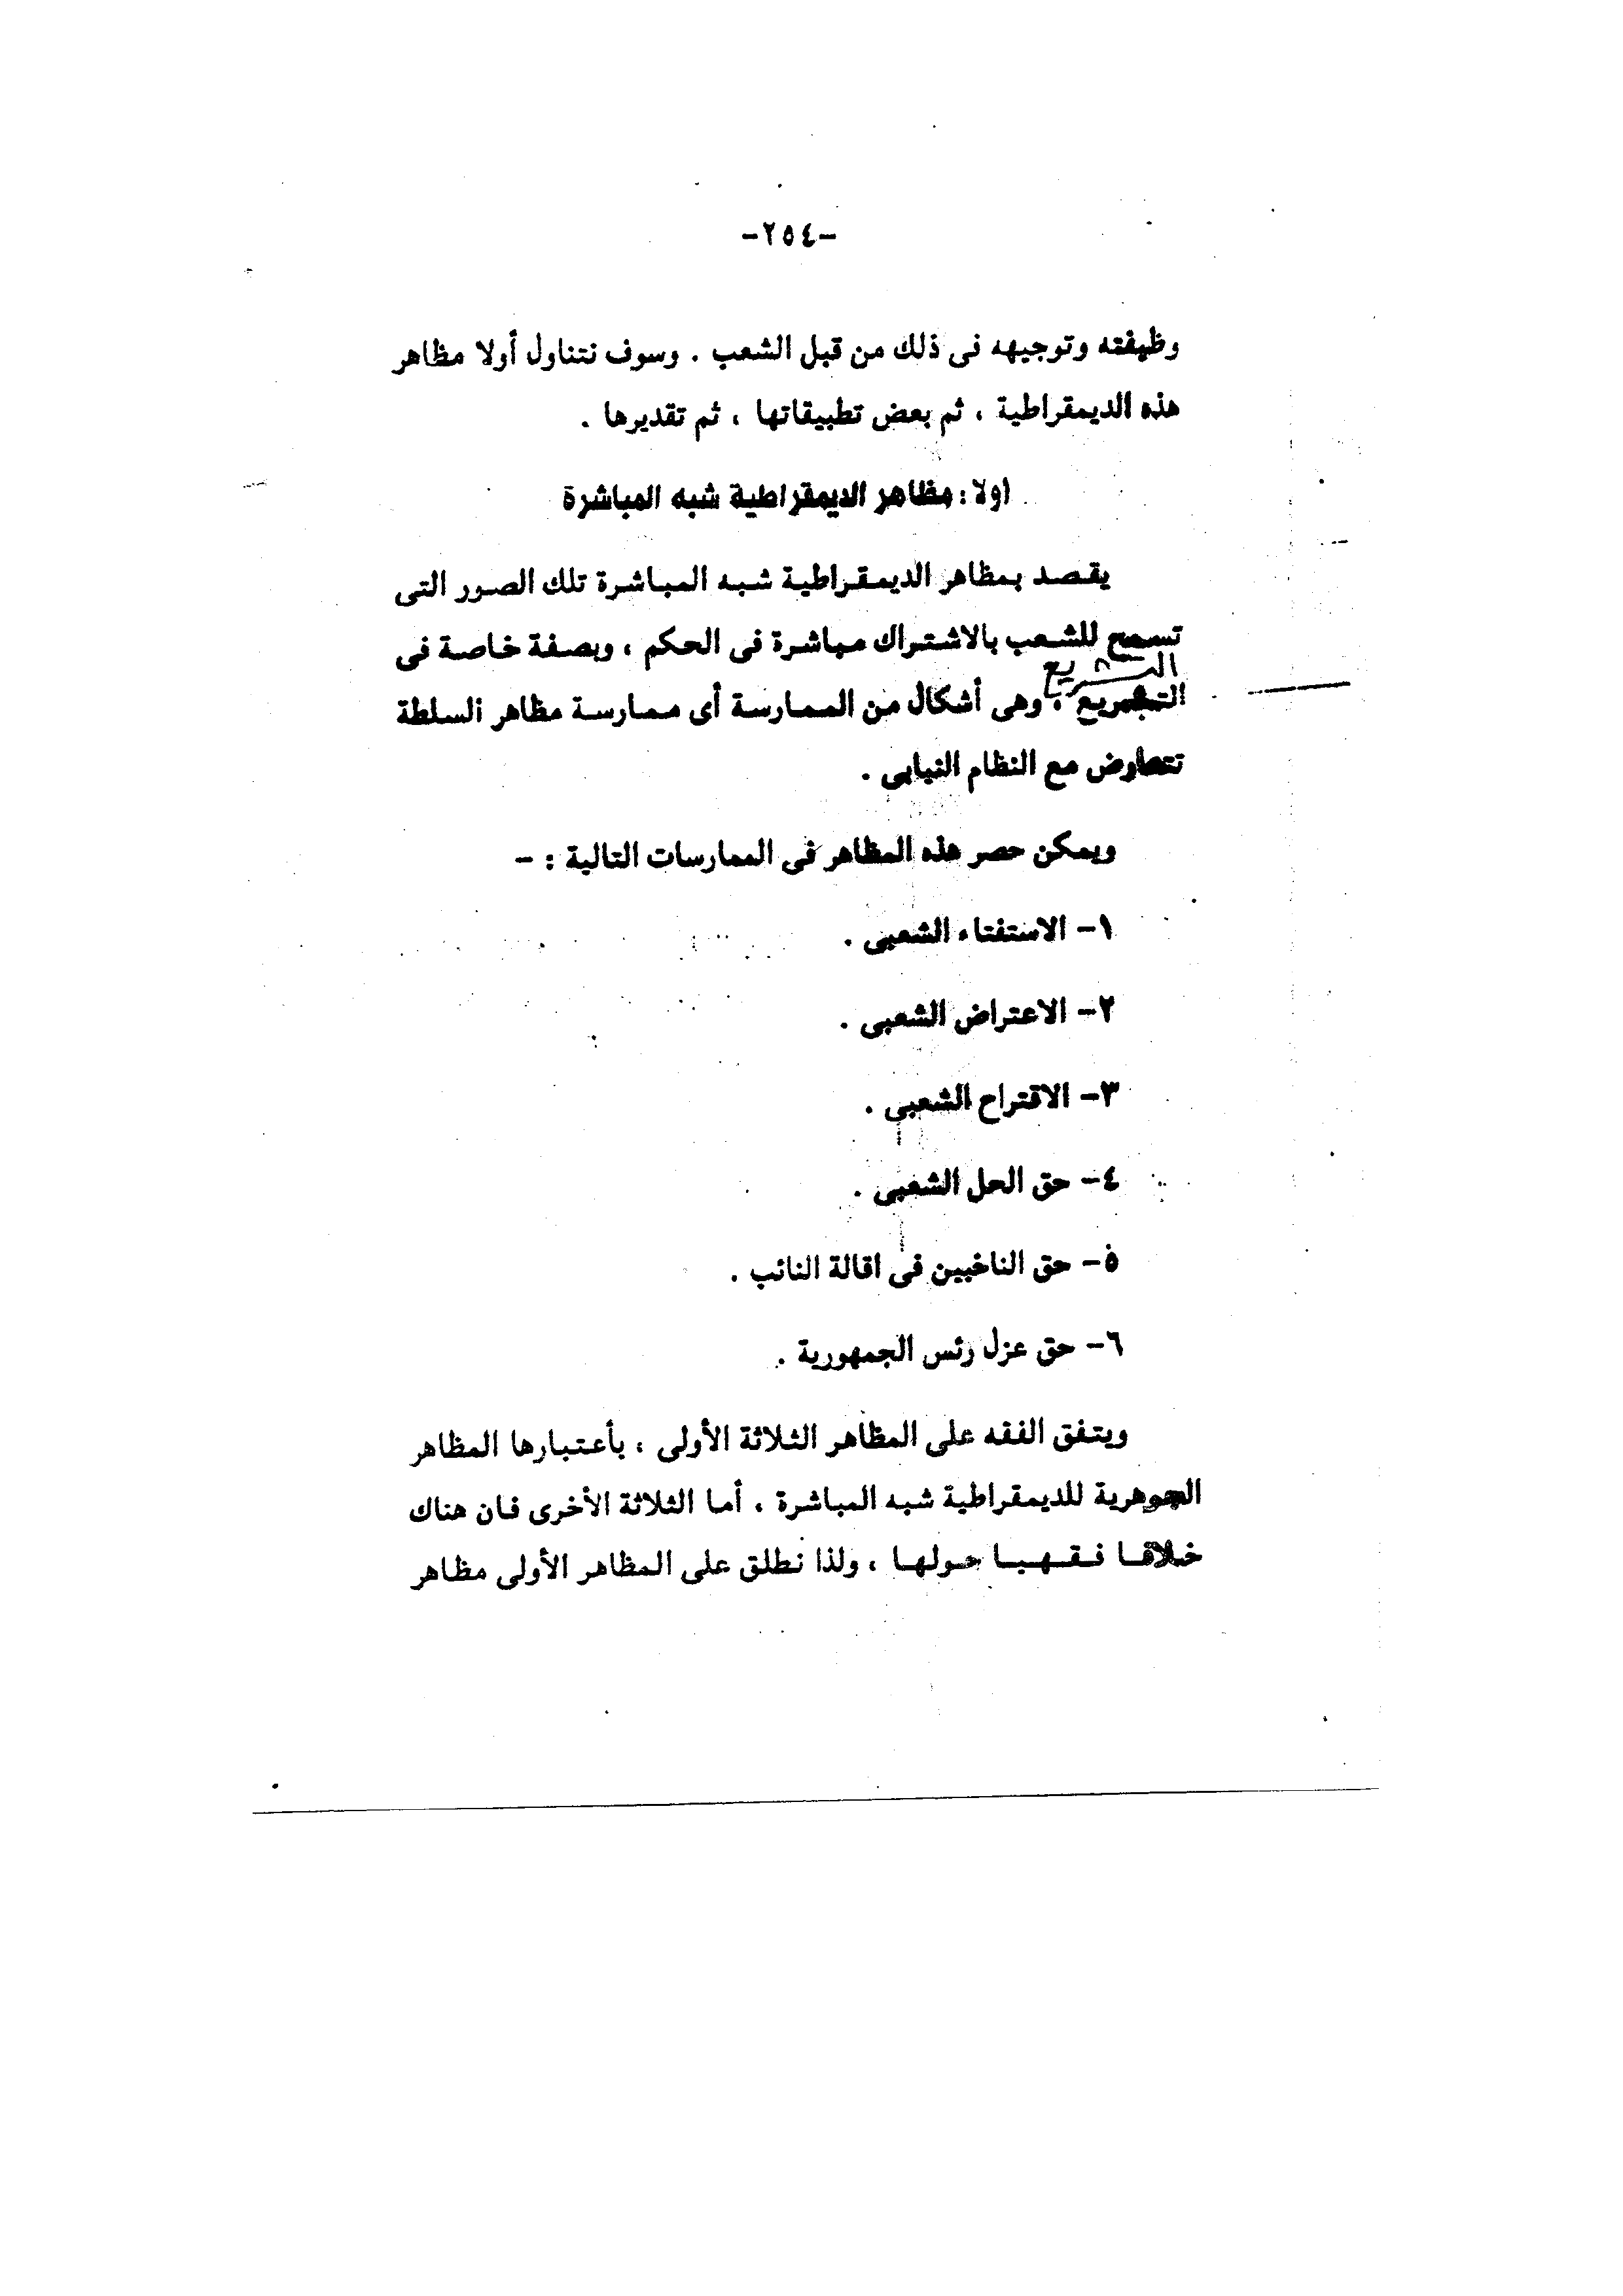 -٢٥٤-
وظيفته وتوجيهه فى ذلك من قبل الشعب . وسوف نتناول أولا مظاهر
هذه الديمقراطية ، ثم بعض تطبيقاتها ، ثم تقديرها .
اولا : مظاهر الديمقراطية شبه المباشرة
يقصد بمظاهر الديمقراطية شبه المباشرة تلك الصور التى
تسمح للشعب بالاشتراك مباشرة فى الحكم ، وبصفة خاصة فى
التشريع
التشريع ، وهى أشكال من الممارسة أى ممارسة مظاهر السلطة
تتعارض مع النظام النيابى .
ويمكن حصر هذه المظاهر فى الممارسات التالية : -
١- الاستفتاء الشعبى .
٢- الاعتراض الشعبى .
٣- الاقتراح الشعبى .
٤- حق الحل الشعبى .
٥- حق الناخبين فى اقالة النائب .
٦- حق عزل رئس الجمهورية .
ويتفق الفقه على المظاهر الثلاثة الأولى ، بأعتبارها المظاهر
الجوهرية للديمقراطية شبه المباشرة ، أما الثلاثة الأخرى فان هناك
خلاقا فقهيا حولها ، ولذا نطلق على المظاهر الأولى مظاهر